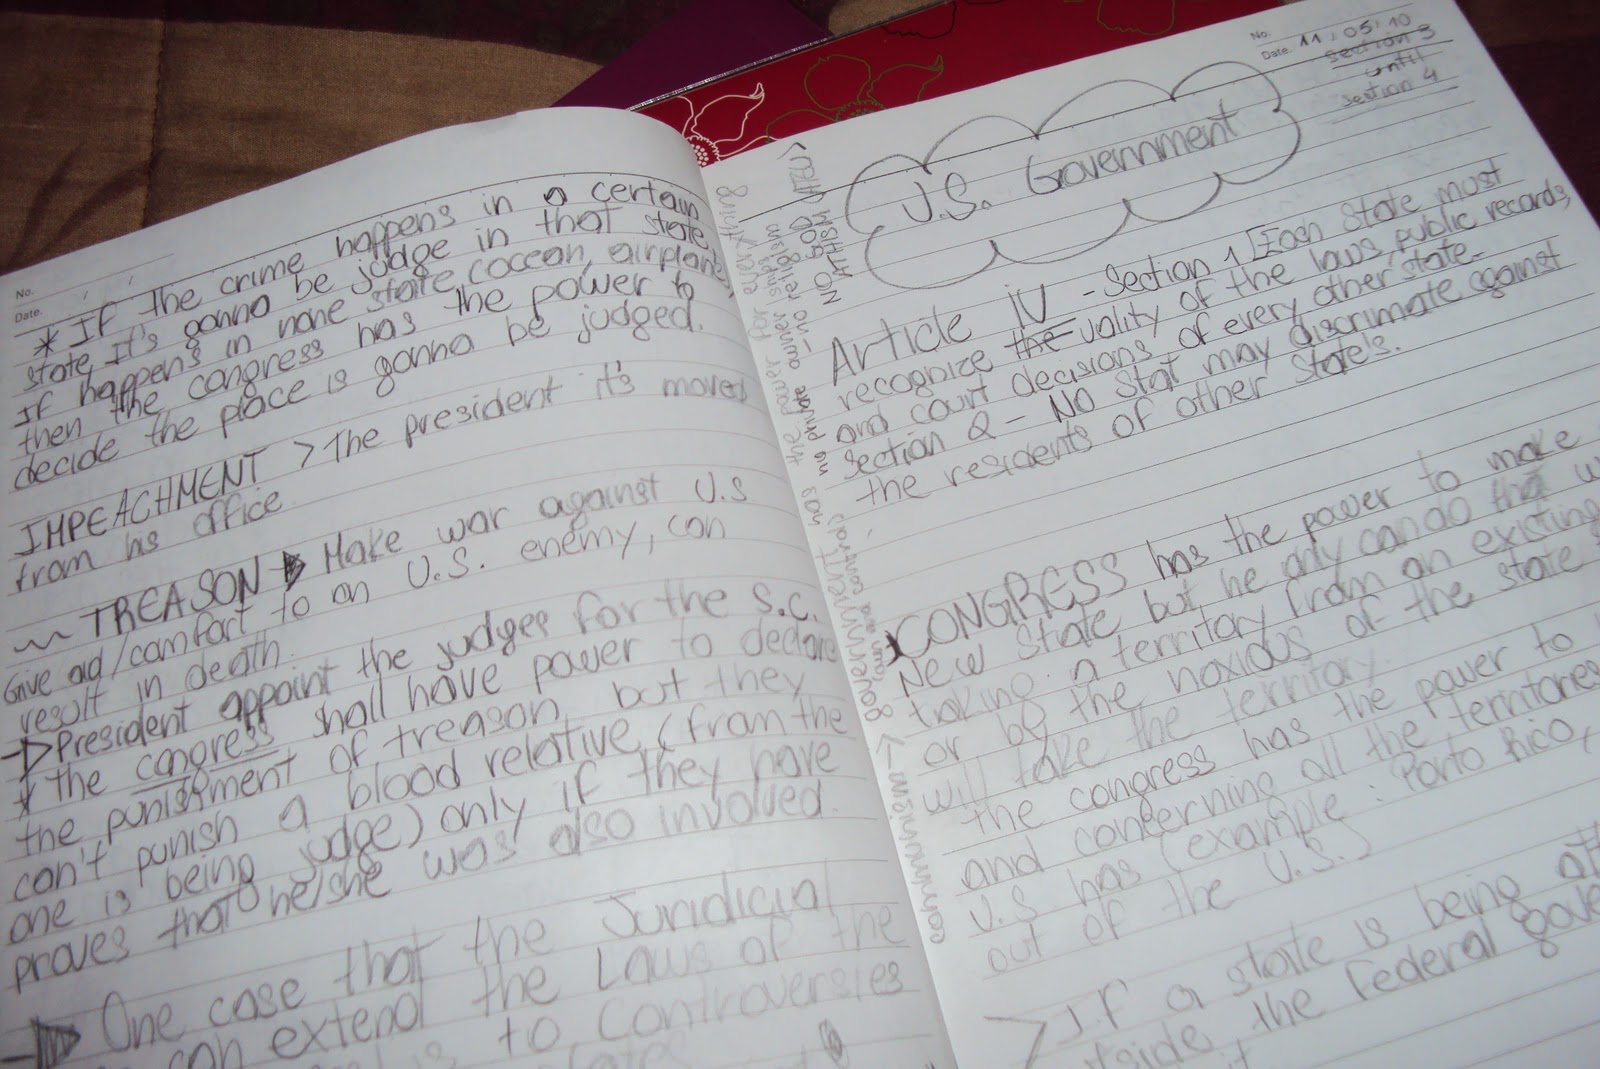 No.
Date.
* If the crime happens in a certain
state, It's gonna be judge in that state,
If happens in none state (ocean, airplane),
then, the congress has the power to
decide the place is gonna be judged.
IMPEACHMENT > The president it's moved
from his office.
~ TREASON → Make war against U.S
Give aid/comfort to an U.S. enemy, can
result in death.
→ President appoint the judges for the S.C.
* the congress shall have power to declare
the punishment of treason, but they
can't punish a blood relative (from the
one is being judge) only if they have
proves that he/she was also involved.
→ One case that the Juridicial
can extend the Laws of the
to controversies
No.
Date. 11/05/10
Section 3
until
section 4
U.S. Government
Article IV - Section 1 [Each State must
recognize the vality of the laws, public records,
and court decisions of every other state.
Section 2 - No stat may discrimate against
the residents of other state's.
CONGRESS has the power to make
New state but he only can do that
taking a territory from an existing
or by the noxious of the state
will take the territory.
the congress has the power to
and concerning all the territories
U.S has (example: Porto Rico,
out of the U.S.)
> If a state is being
the Federal
communism -> government has the power for everything
- no religionism
no private owner
NO GOD